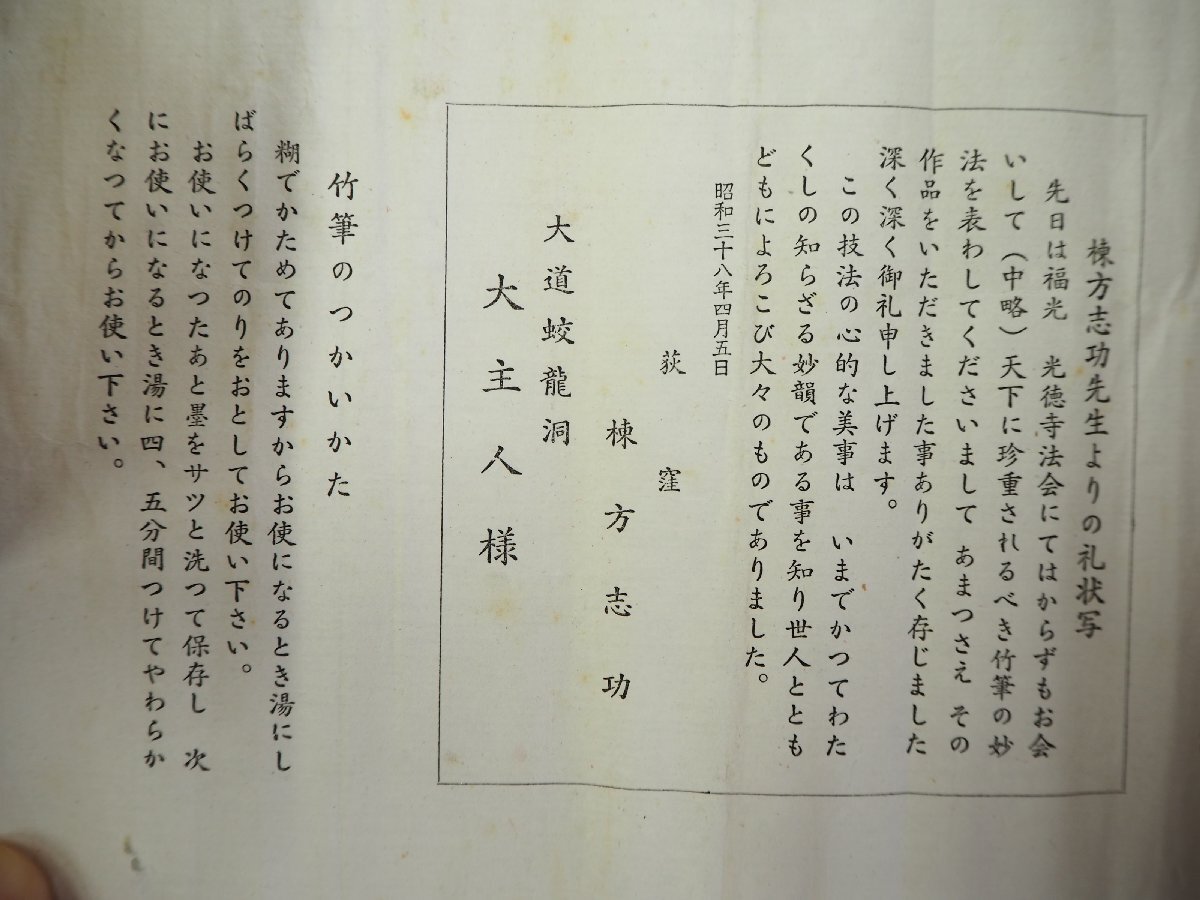 棟方志功先生よりの礼状写
先日は福光　光徳寺法会にてはからずもお会
いして（中略）天下に珍重されるべき竹筆の妙
法を表わしてくださいまして　あまつさえ　その
作品をいただきました事ありがたく存じました
深く深く御礼申し上げます。
この技法の心的な美事は　いまでかつてわた
くしの知らざる妙韻である事を知り世人ととも
どもによろこび大々のものでありました。
昭和三十八年四月五日
荻窪
棟方志功
大道蛟龍洞
大主人様
竹筆のつかいかた
糊でかためてありますからお使になるとき湯にし
ばらくつけてのりをおとしてお使い下さい。
お使いになつたあと墨をサツと洗つて保存し　次
にお使いになるとき湯に四、五分間つけてやわらか
くなつてからお使い下さい。